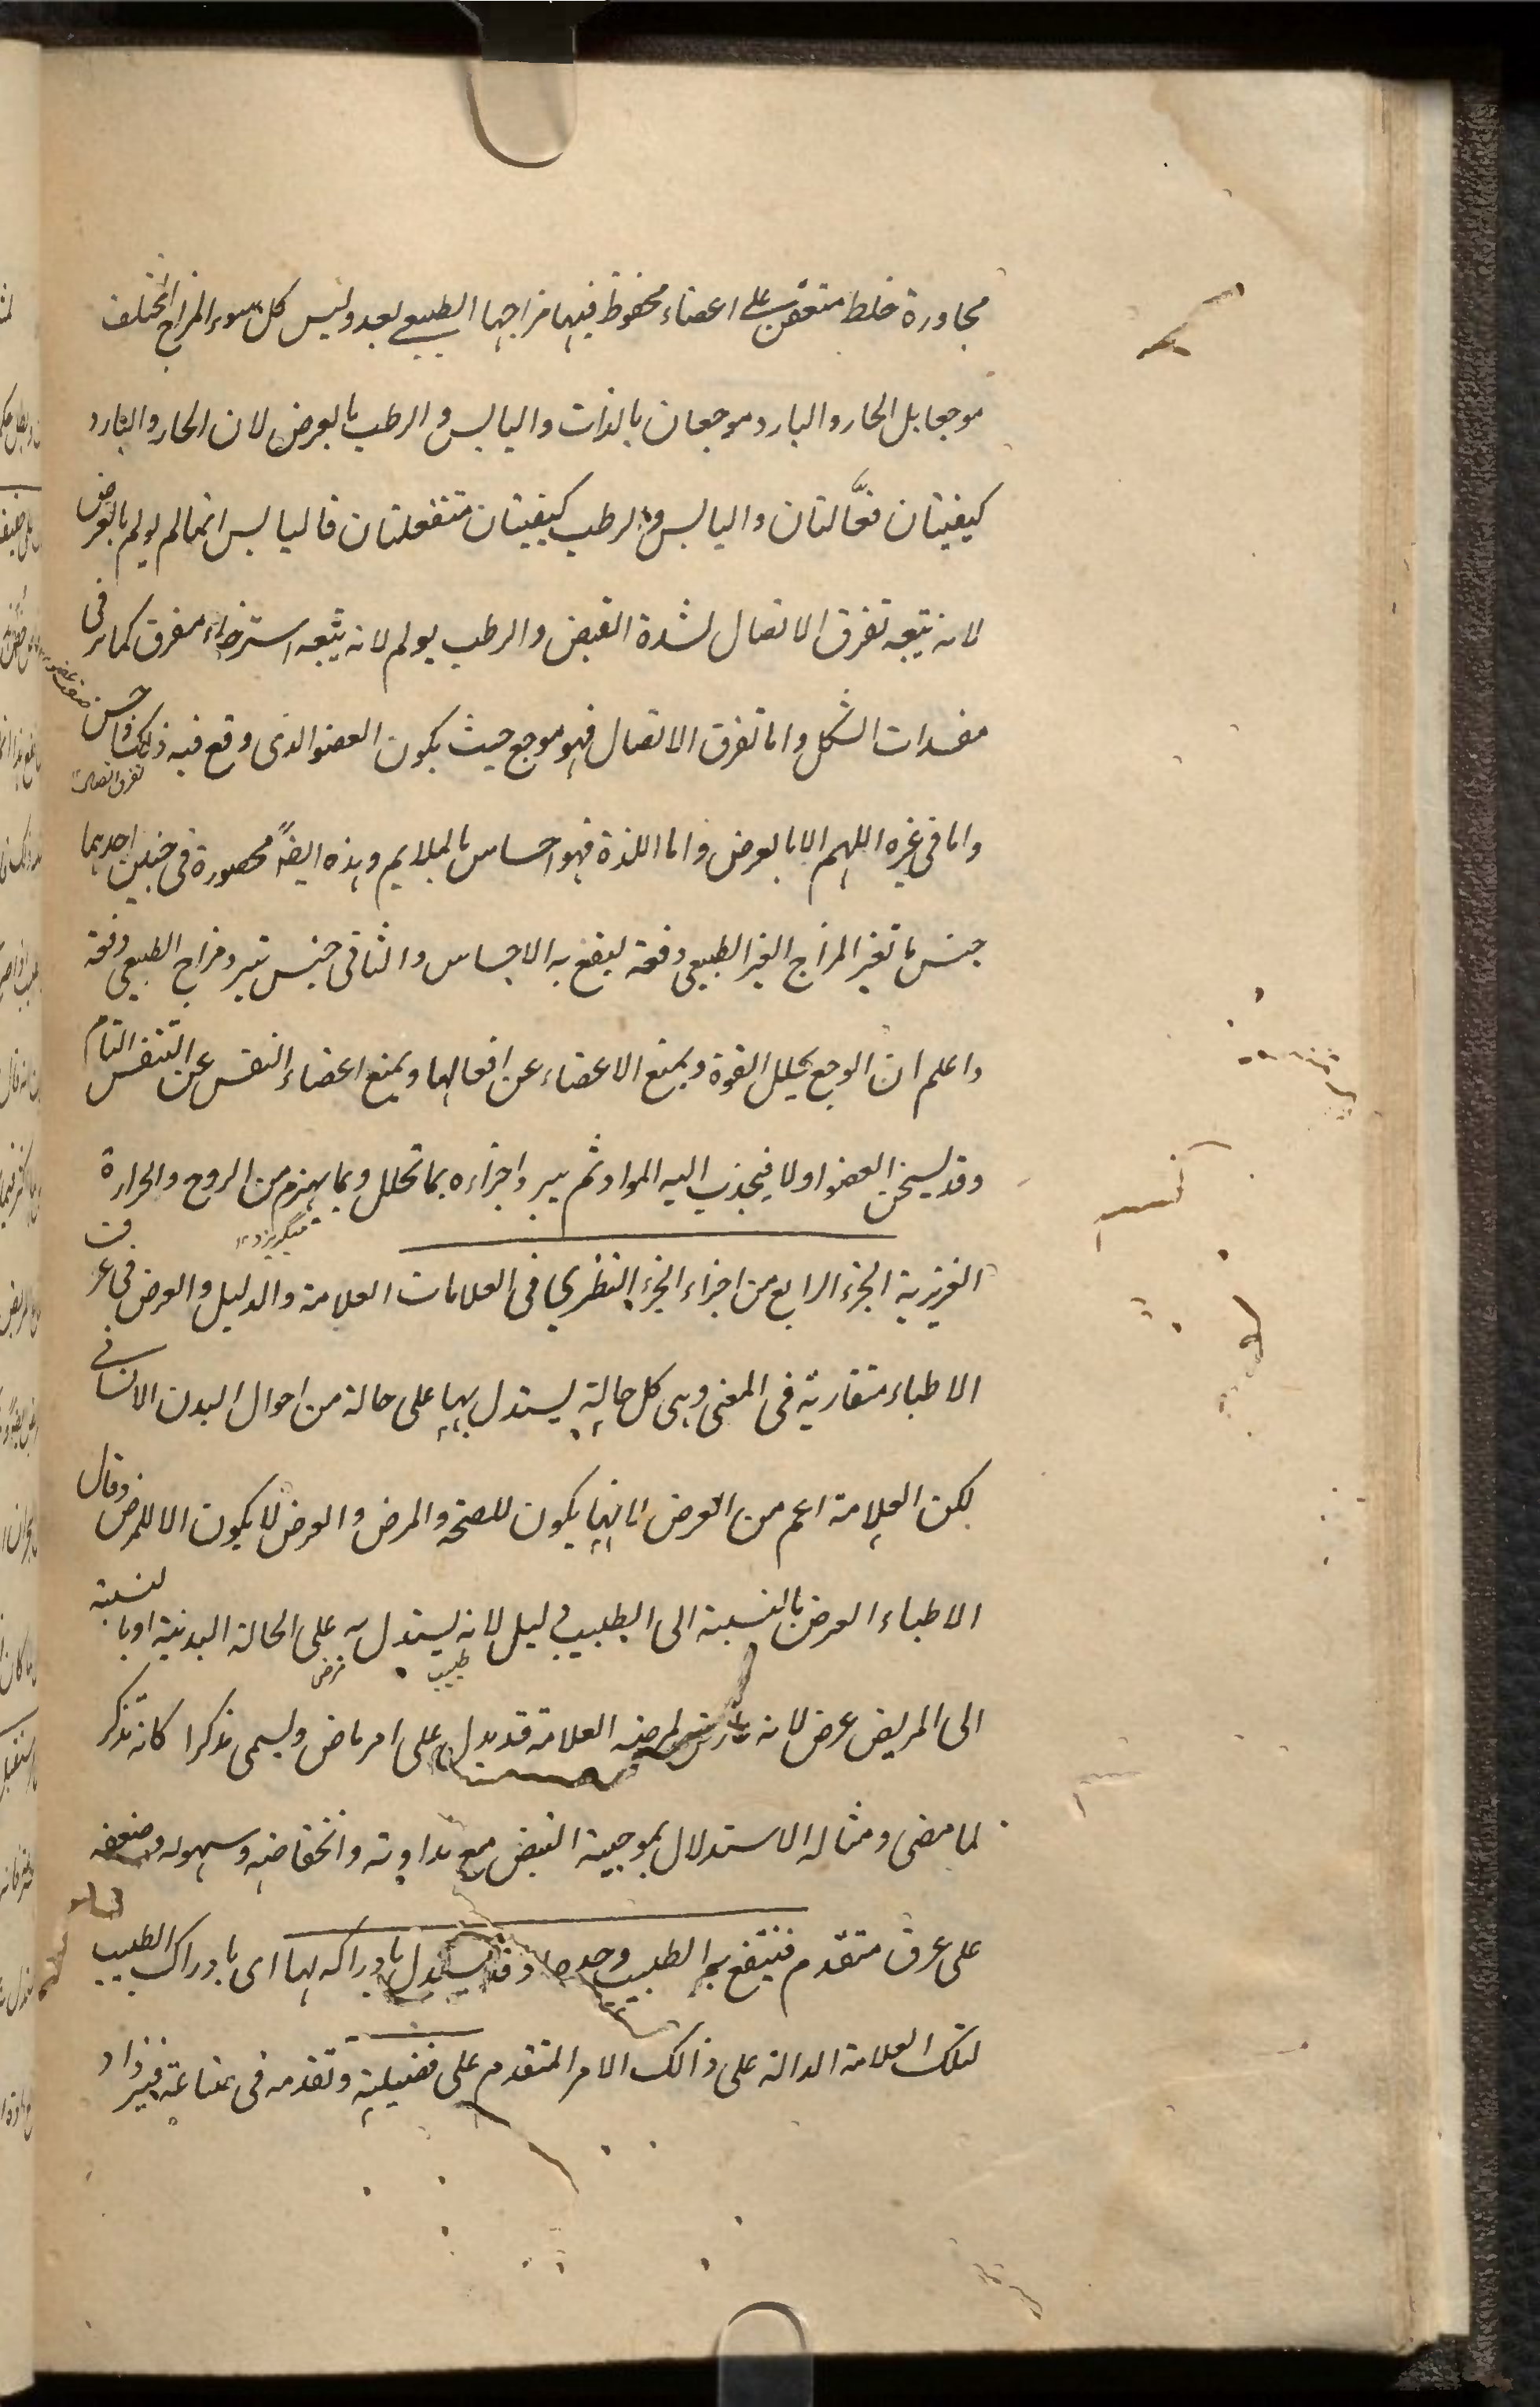 مجاورة خلط متعفن على اعضاء محفوظ فيها مزاجها الطبيعي بعد وليس كل سوء المزاج المختلف
موجعا بل الحار والبارد موجعان بالذات واليابس والرطب بالعرض لان الحار والبارد
كيفيتان فعّالتان واليابس والرطب كيفيتان منفعلتان فاليابس انما لم يولم بالعرض
لانه يتبعه تفرق الاتصال لشدة القبض والرطب يولم لانه يتبعه استرخاء مفرق كما مر فى
مفسدات الشكل واما تفرق الاتصال فهو موجع حيث يكون العضو الذى وقع فيه ذلك حس
تفرق اتصال
واما فى غيره اللهم الا بالعرض واما اللذة فهو احساس بالملايم وهذه ايضاً محصورة فى جنسين احدهما
جنس ما تغير المزاج الغير الطبيعى دفعة ليقع به الاحساس والثانى جنس مزاج الطبيعى دفعة
واعلم ان الوجع يحلل القوة ويمنع الاعضاء عن افعالها ويمنع اعضاء النفس عن التنفس التام
وقد يسخن العضو اولا فيجذب اليه المواد ثم يبرد اجزاءه بما تحلل وبما يهزم من الروح والحرارة
ميگريزد ١٢
الغريزية الجزء الرابع من اجزاء الجزء النظري فى العلامات العلامة والدليل والعرض فى عرف
الاطباء متقاربة فى المعنى وهى كل حالة يستدل بها على حالة من احوال البدن الانسانى
لكن العلامة اعم من العرض لانها يكون للصحة والمرض والعرض لا يكون الا للمرض وقال
الاطباء العرض بالنسبة الى الطبيب دليل لانه يستدل به على الحالة البدنية وبالنسبة
طبيب مرض
الى المريض عرض لانه عارض لمرضه العلامة قد يدل على امر ماض ويسمى مذكرا كانه تذكر
لما مضى ومثاله الاستدلال بموجية النبض مع نداوته وانخفاضه وسهوله وضعفه
على عرق متقدم فينتفع به الطبيب وحده وقد يستدل بادراكه لها اى بادراك الطبيب
لتلك العلامة الدالة على ذالك الامر المتقدم على فضيلته وتقدمه فى صناعته فيزداد